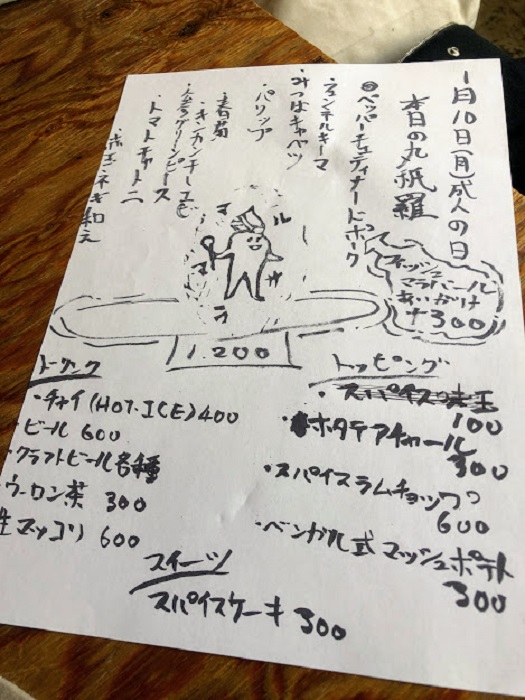 1月10日(月)成人の日
本日の丸祇羅
◎ペッパーチェティナードポーク
フェンネルキーマ
・みつばキャベツ
・パリップ
・春菊
・キンカンチーエビ
・人参グリーンピース
・トマトチャトニ
・赤玉ネギ和え
フィッシュ
マラバール
あいがけ
+300
マ
ル
サ
オ
1.200
ドリンク
・チャイ(HOT・ICE)400
・ビール 600
・クラフトビール各種
ウーロン茶 300
生マッコリ 600
トッピング
・スパイス味玉
100
・ホタテアチャール
300
・スパイスラムチョップ
600
・ベンガル式マッシュポテト
300
スイーツ
スパイスケーキ 300